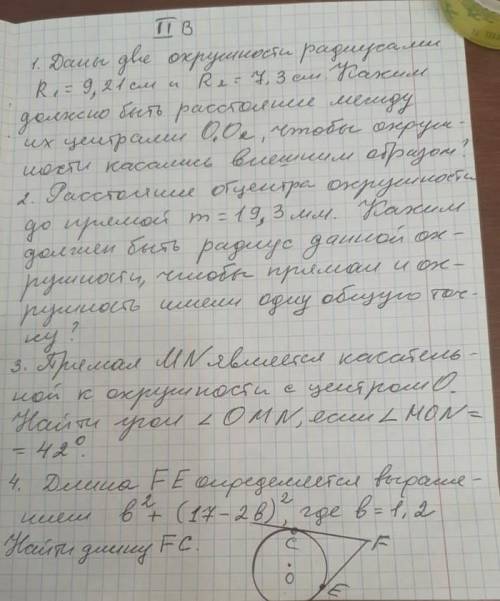 II В
1. Даны две окружности радиусами
R₁ = 9,21 см и R₂ = 7,3 см. Каким
должно быть расстояние между
их центрами O₁O₂, чтобы окруж-
ности касались внешним образом?
2. Расстояние от центра окружности
до прямой m = 19,3 мм. Каким
должен быть радиус данной ок-
ружности, чтобы прямая и ок-
ружность имели одну общую точ-
ку?
3. Прямая MN является касатель-
ной к окружности с центром О.
Найти угол ∠OMN, если ∠MON =
= 42°.
4. Длина FE определяется выраже-
нием b² + (17 - 2b)², где b = 1,2
Найти длину FC.
C
F
O
E